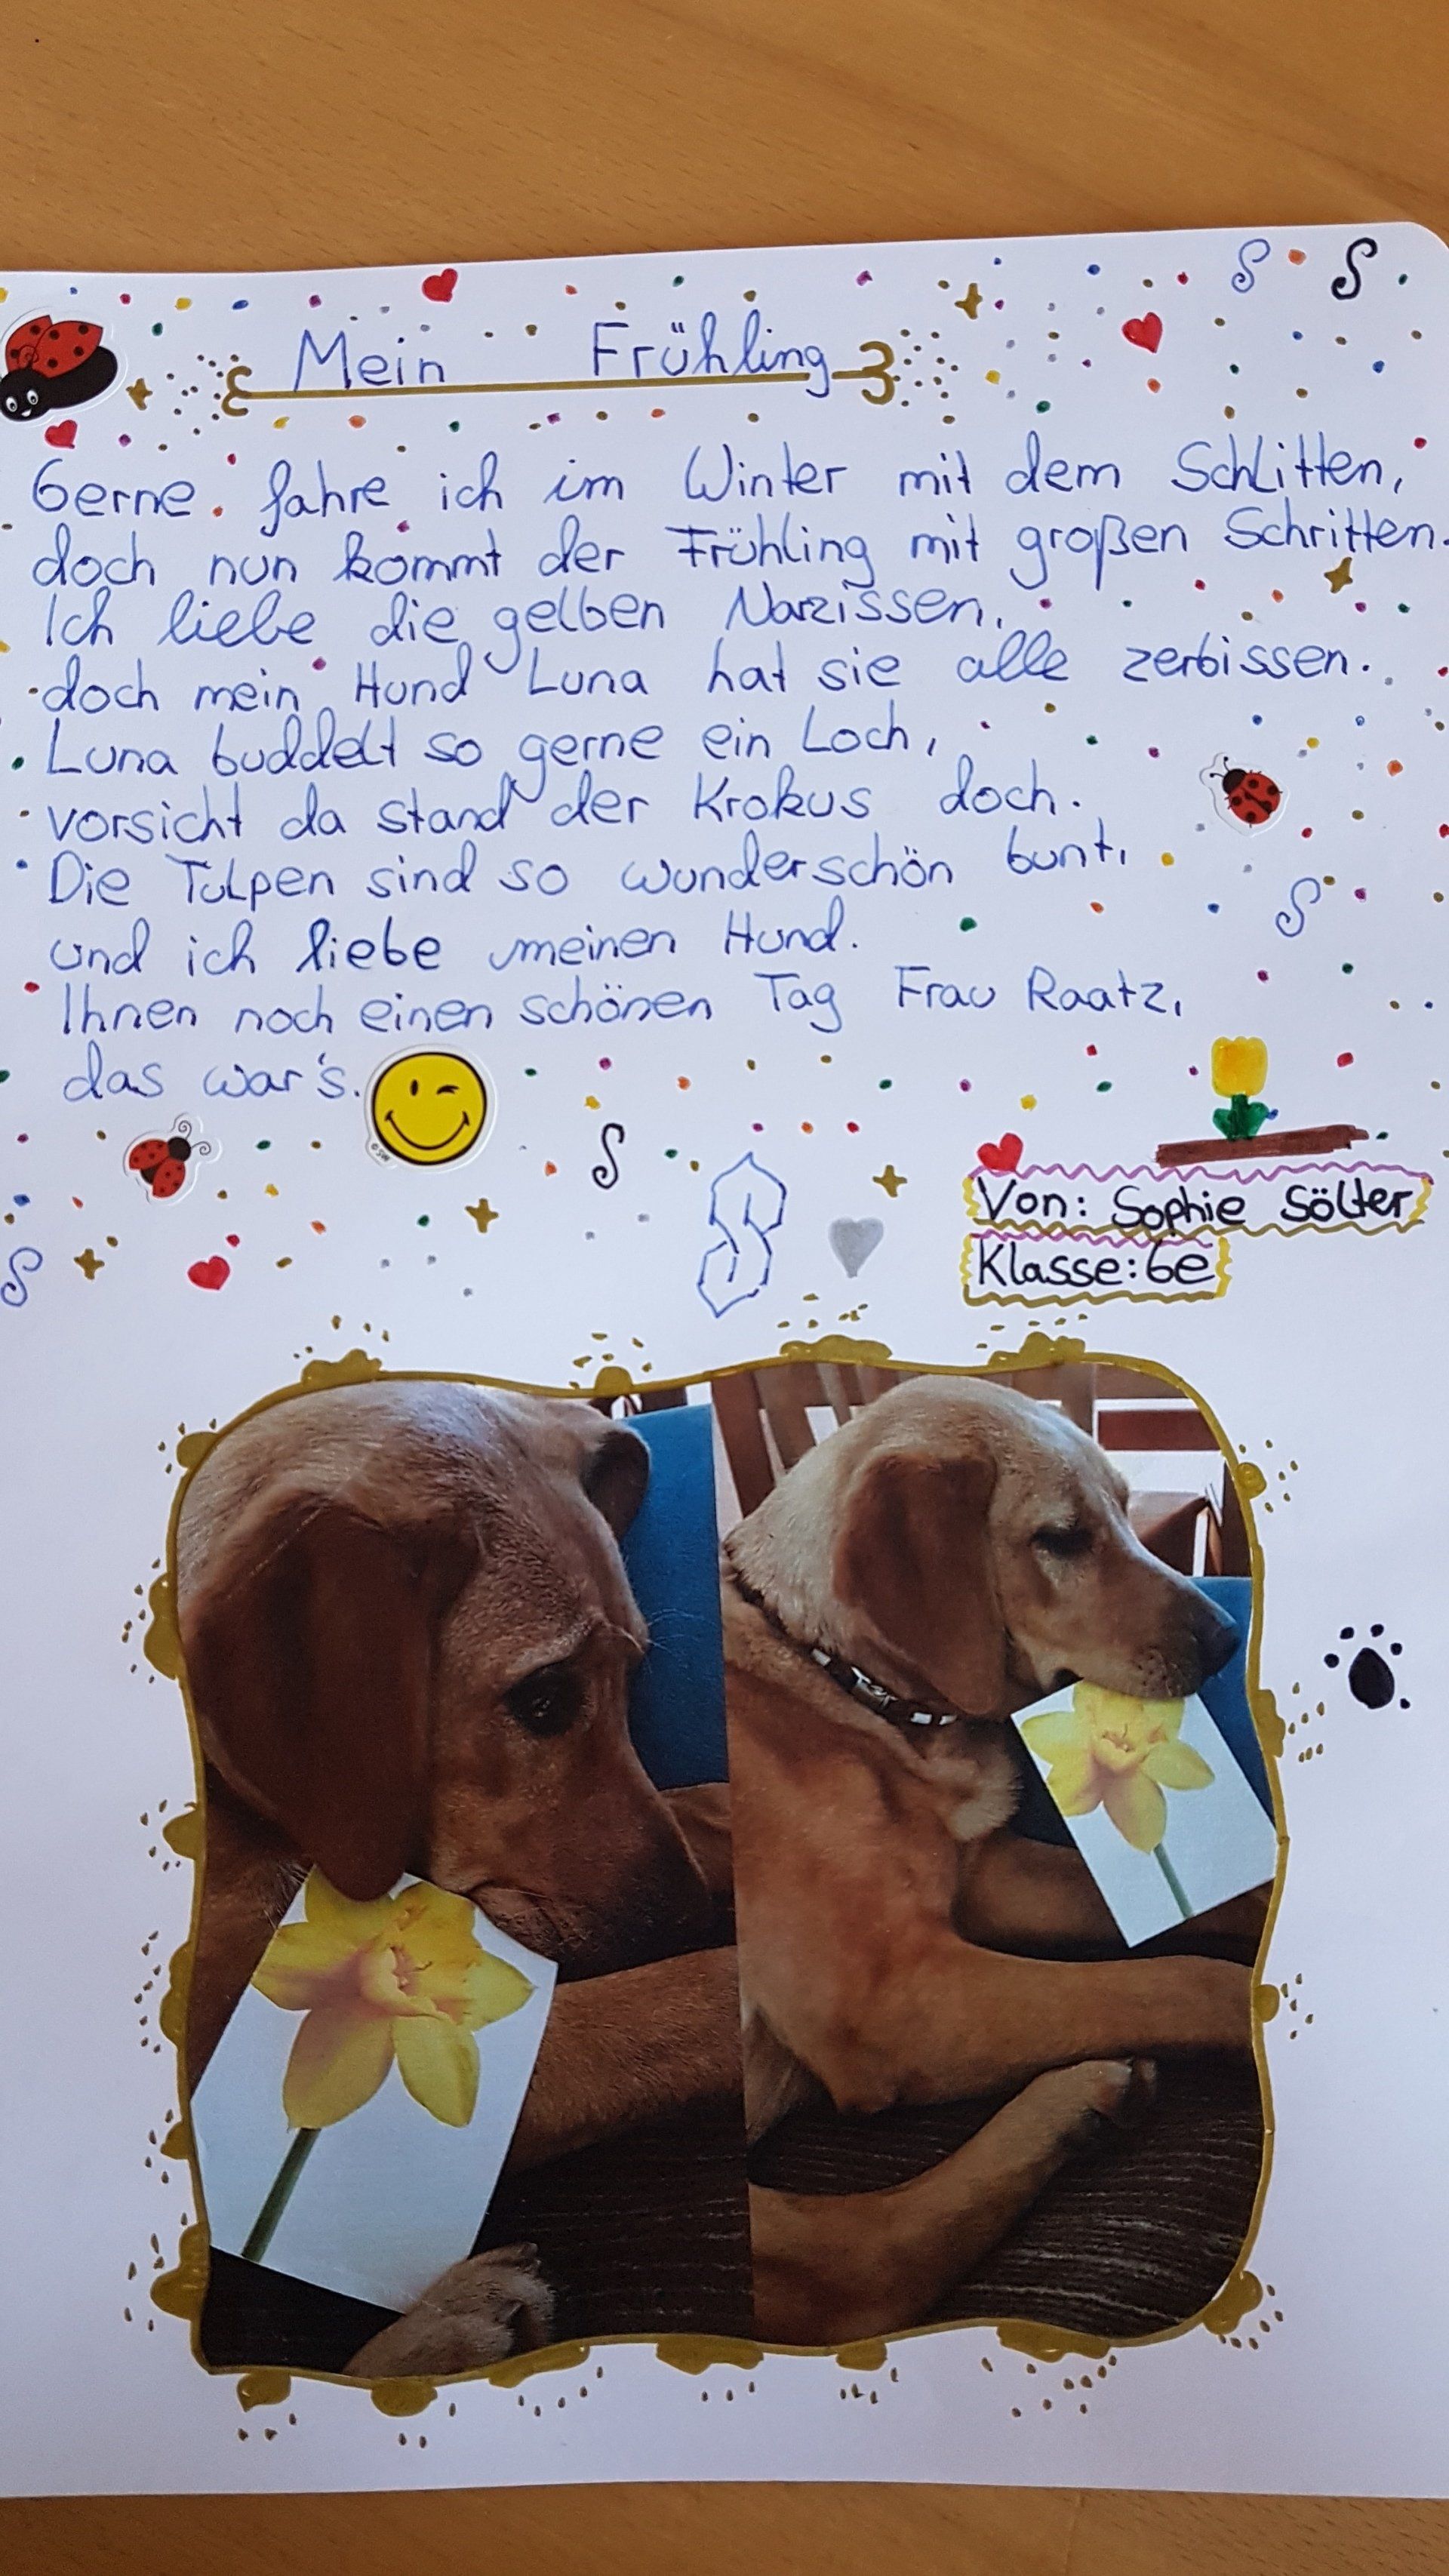 Mein Frühling
Gerne fahre ich im Winter mit dem Schlitten,
doch nun kommt der Frühling mit großen Schritten.
Ich liebe die gelben Narzissen,
doch mein Hund Luna hat sie alle zerbissen.
Luna buddelt so gerne ein Loch,
vorsicht da stand der Krokus doch.
Die Tulpen sind so wunderschön bunt,
und ich liebe meinen Hund.
Ihnen noch einen schönen Tag Frau Raatz,
das war's.
Von: Sophie Sölter
Klasse: 6e